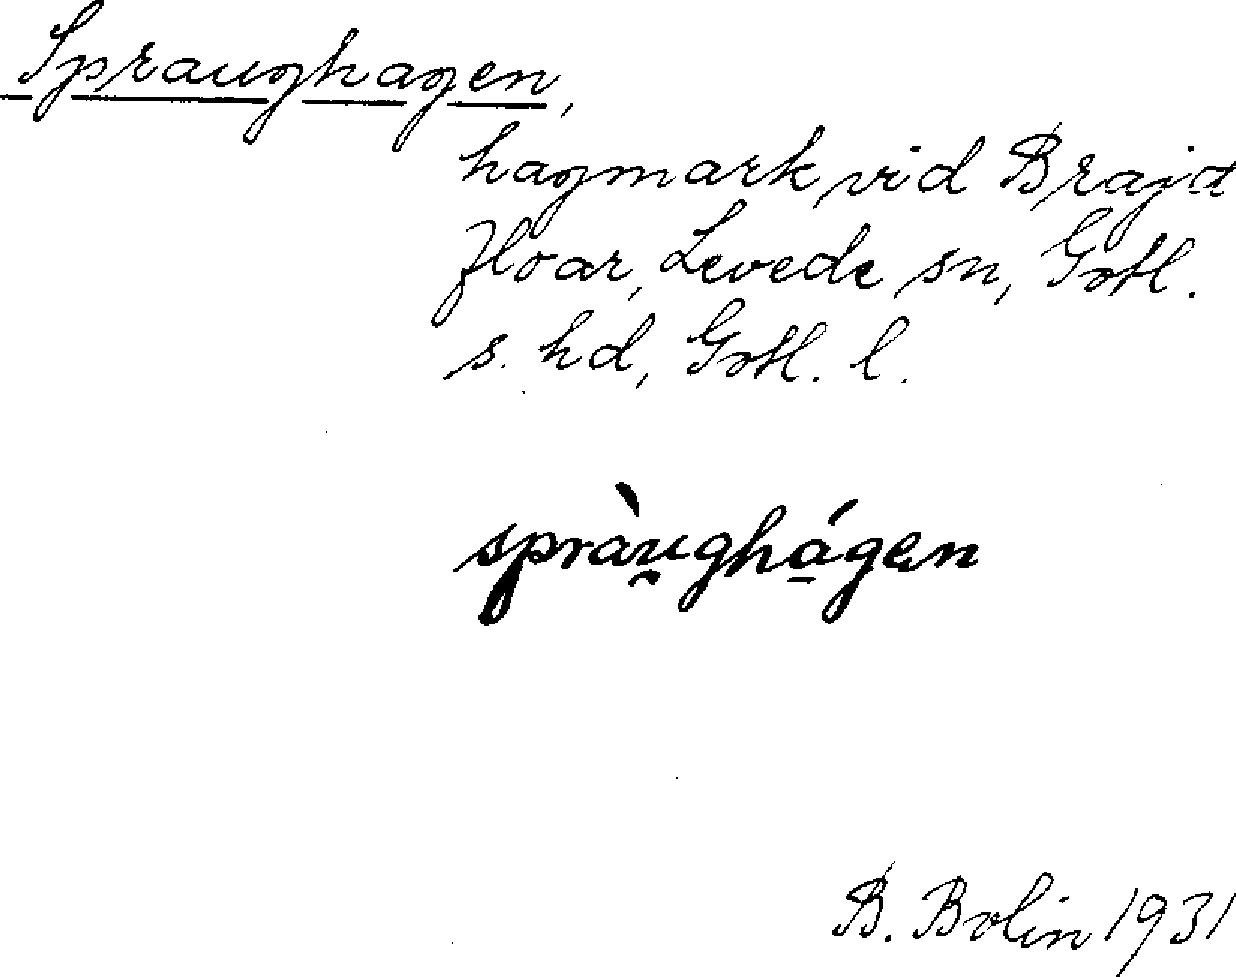 Spraughagen,
hagmark vid Brajd
floar, Levede sn, Gotl.
s. hd, Gotl. l.
spràu̯ghá̱gen
B. Bolin 1931